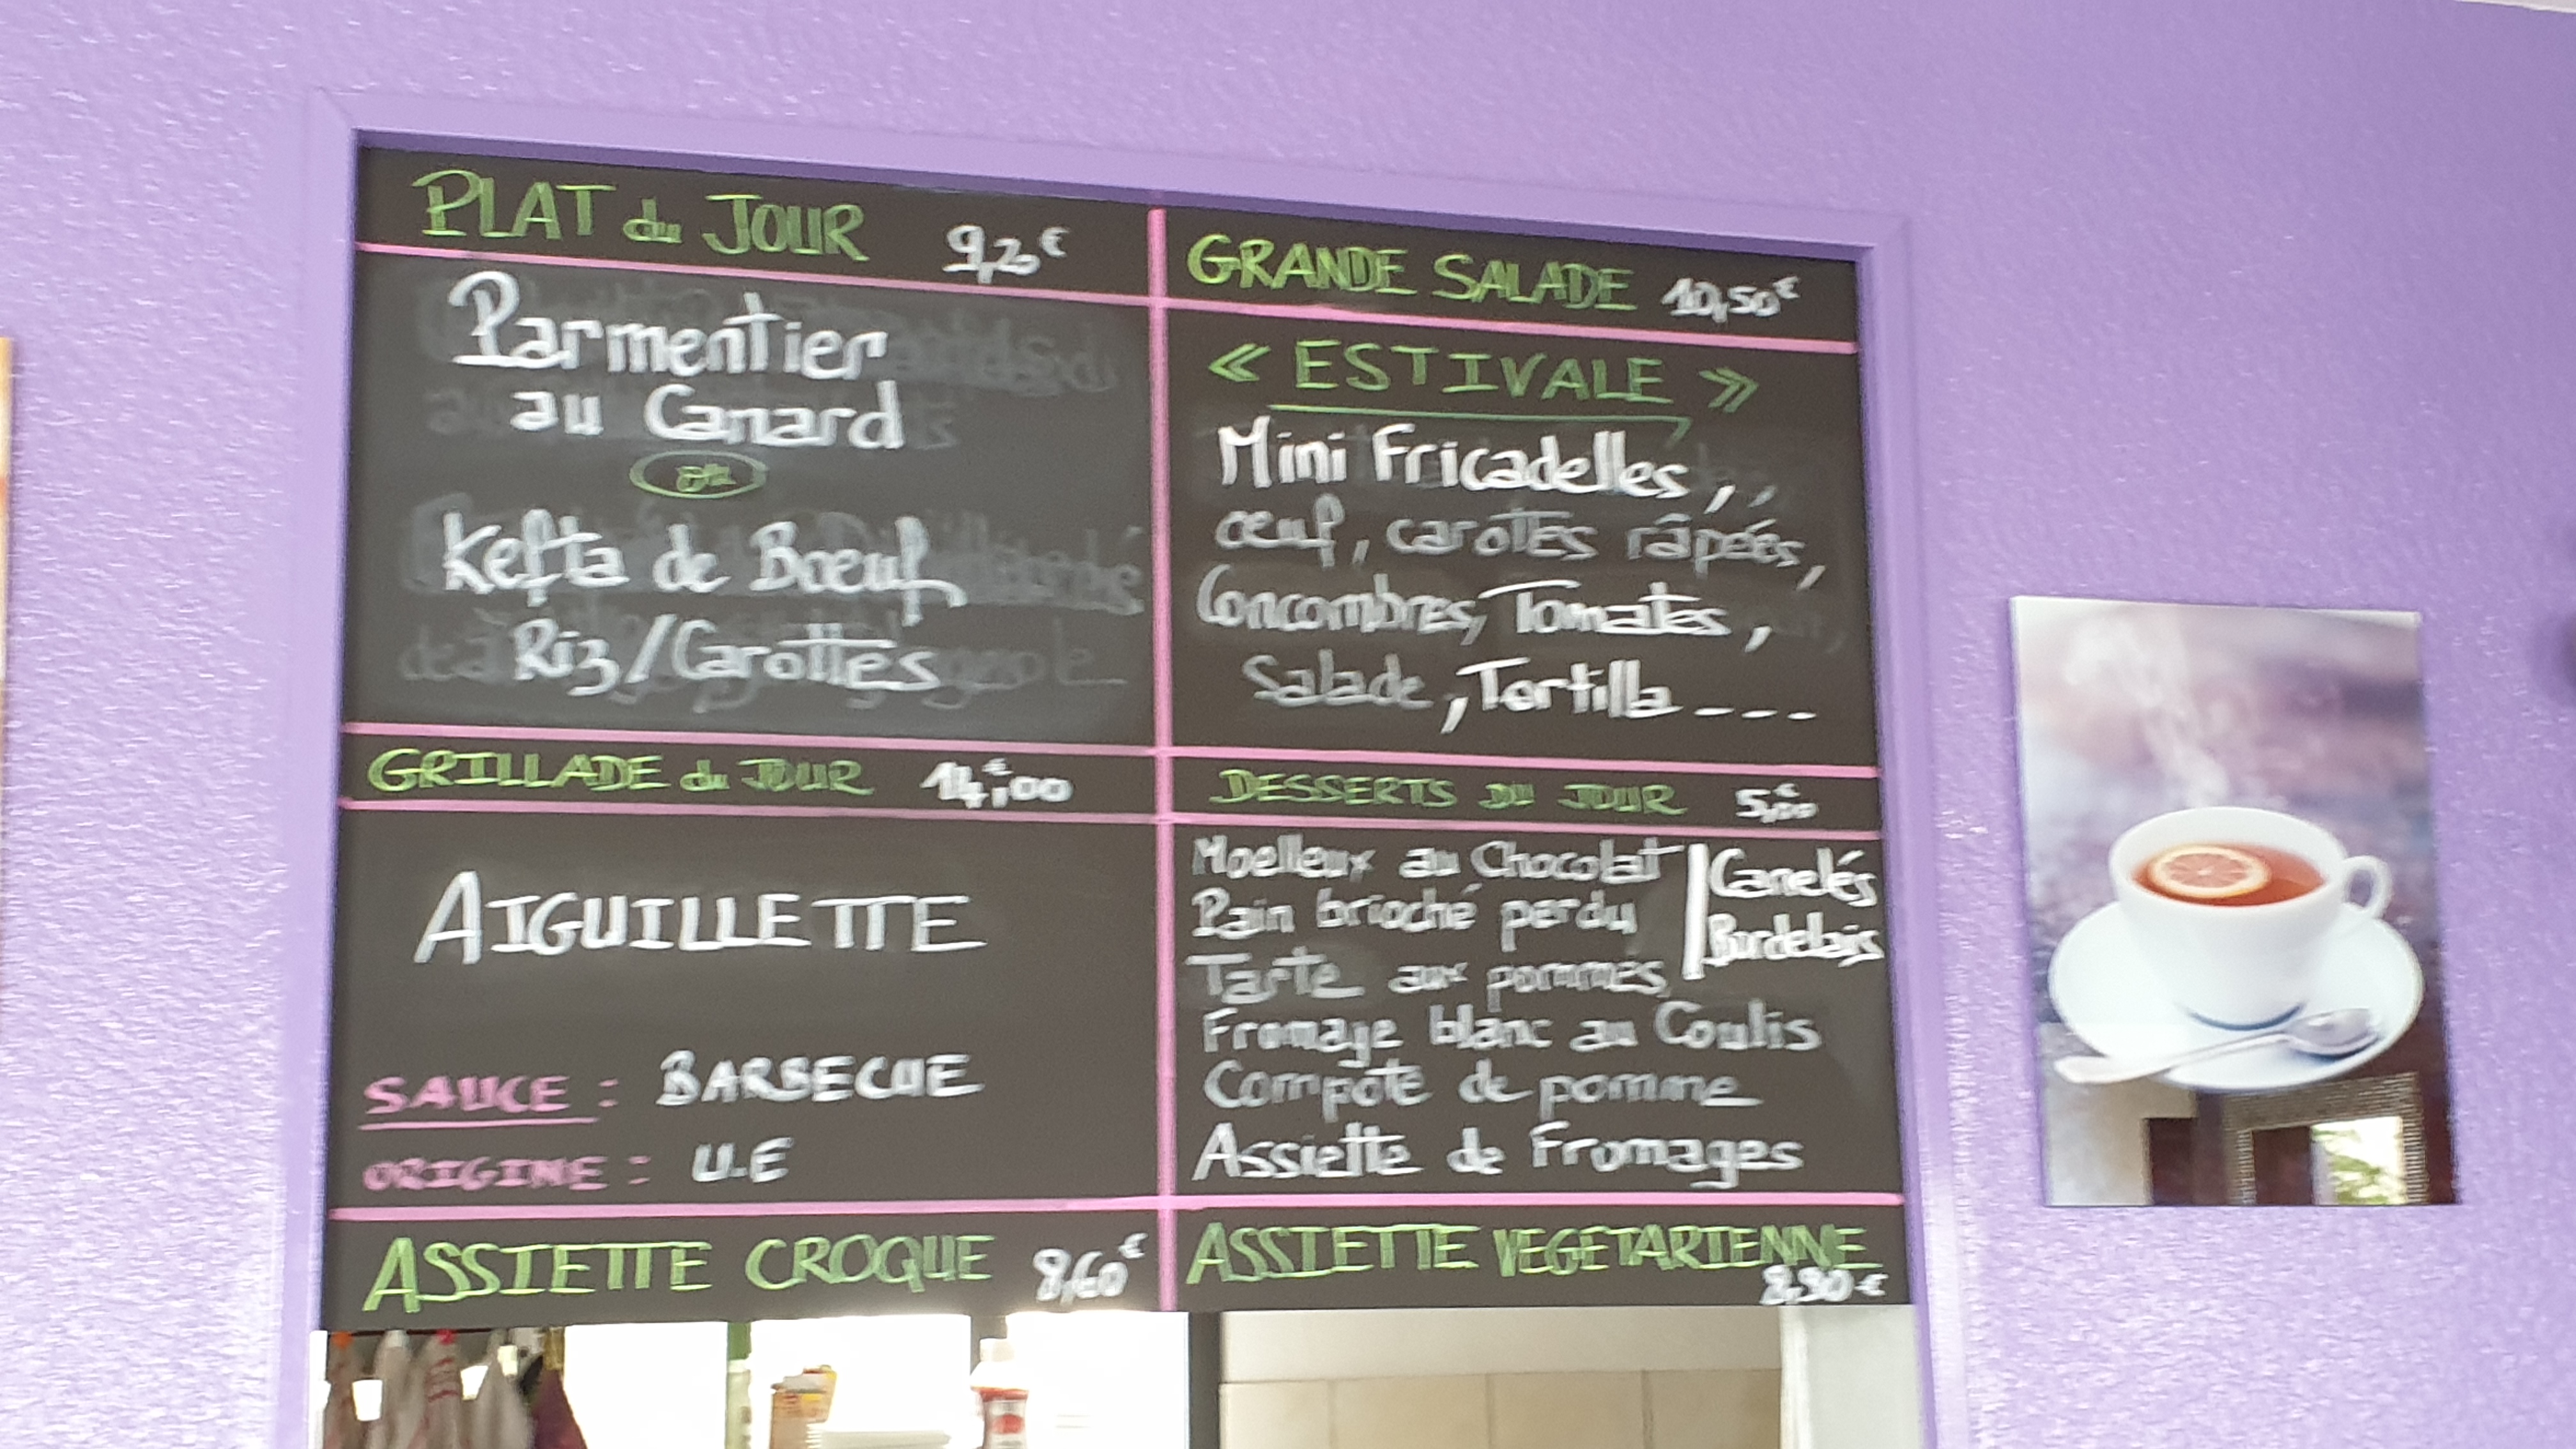 PLAT du JOUR 9,20€
Parmentier
au Canard
ou
Kefta de Bœuf
Riz/Carottes
GRILLADE du JOUR 14,00€
AIGUILLETTE
SAUCE : BARBECUE
ORIGINE : U.E
ASSIETTE CROQUE 8,60€
GRANDE SALADE 10,50€
« ESTIVALE »
Mini Fricadelles,
œuf, carottes râpées,
Concombres, Tomates,
Salade, Tortilla ----
DESSERTS DU JOUR 5,00€
Moelleux au Chocolat
Pain brioché perdu
Tarte aux pommes
Canelés
Bordelais
Fromage blanc au Coulis
Compote de pomme
Assiette de Fromages
ASSIETTE VEGETARIENNE
8,90€